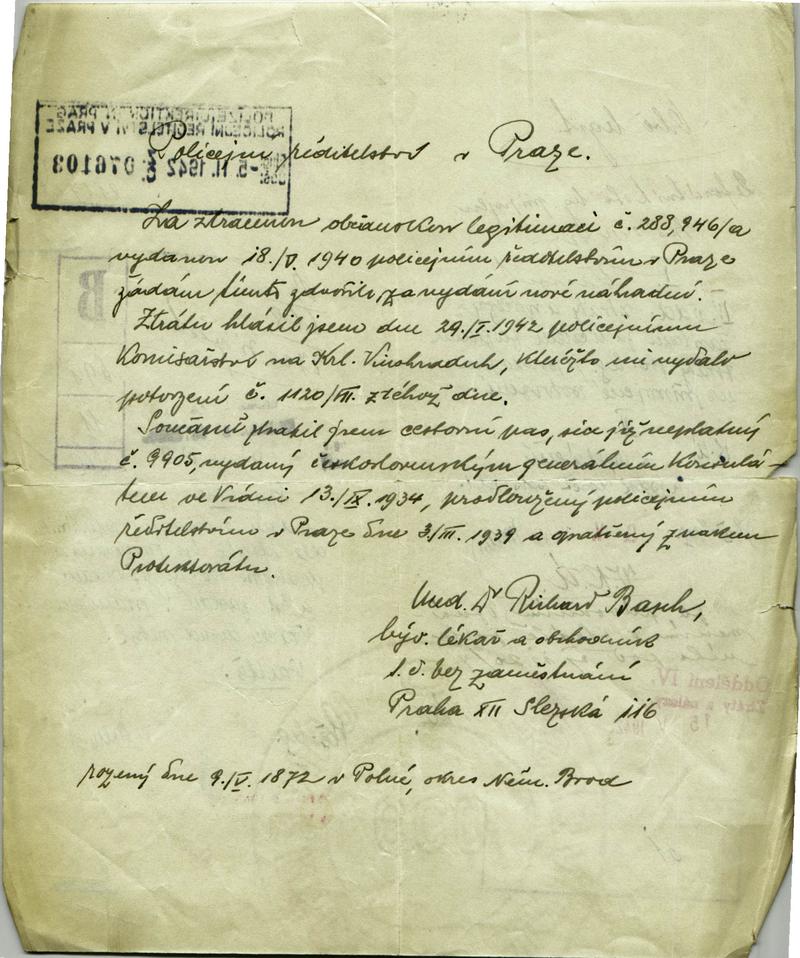 POLIZEIDIREKTION IN PRAG
POLICEJNÍ ŘEDITELSTVÍ V PRAZE
-5. II. 1942 Č. 076103
Policejní ředitelství v Praze.
Za ztracenou občanskou legitimaci č. 288,946/a
vydanou 18./V. 1940 policejním ředitelstvím v Praze
žádám tímto zdvořile, za vydání nové náhradní.
Ztrátu hlásil jsem dne 29./I. 1942 policejnímu
Komisařství na Krl. Vinohradech, kteréžto mi vydalo
potvrzení č. 1120/VII. z téhož dne.
Současně ztratil jsem cestovní pas, sice již neplatný
č. 9905, vydaný československým generálním Konsulá-
tem ve Vídni 13./IX. 1934, prodloužený policejním
ředitelstvím v Praze dne 3/III. 1939 a opatřený znakem
Protektorátu.
Med. Dr Richard Basch,
býv. lékař a obchodník
t. č. bez zaměstnání
Praha XII Slezská 116
rozený dne 9./V. 1872 v Polné, okres Něm. Brod
Oddělení IV.